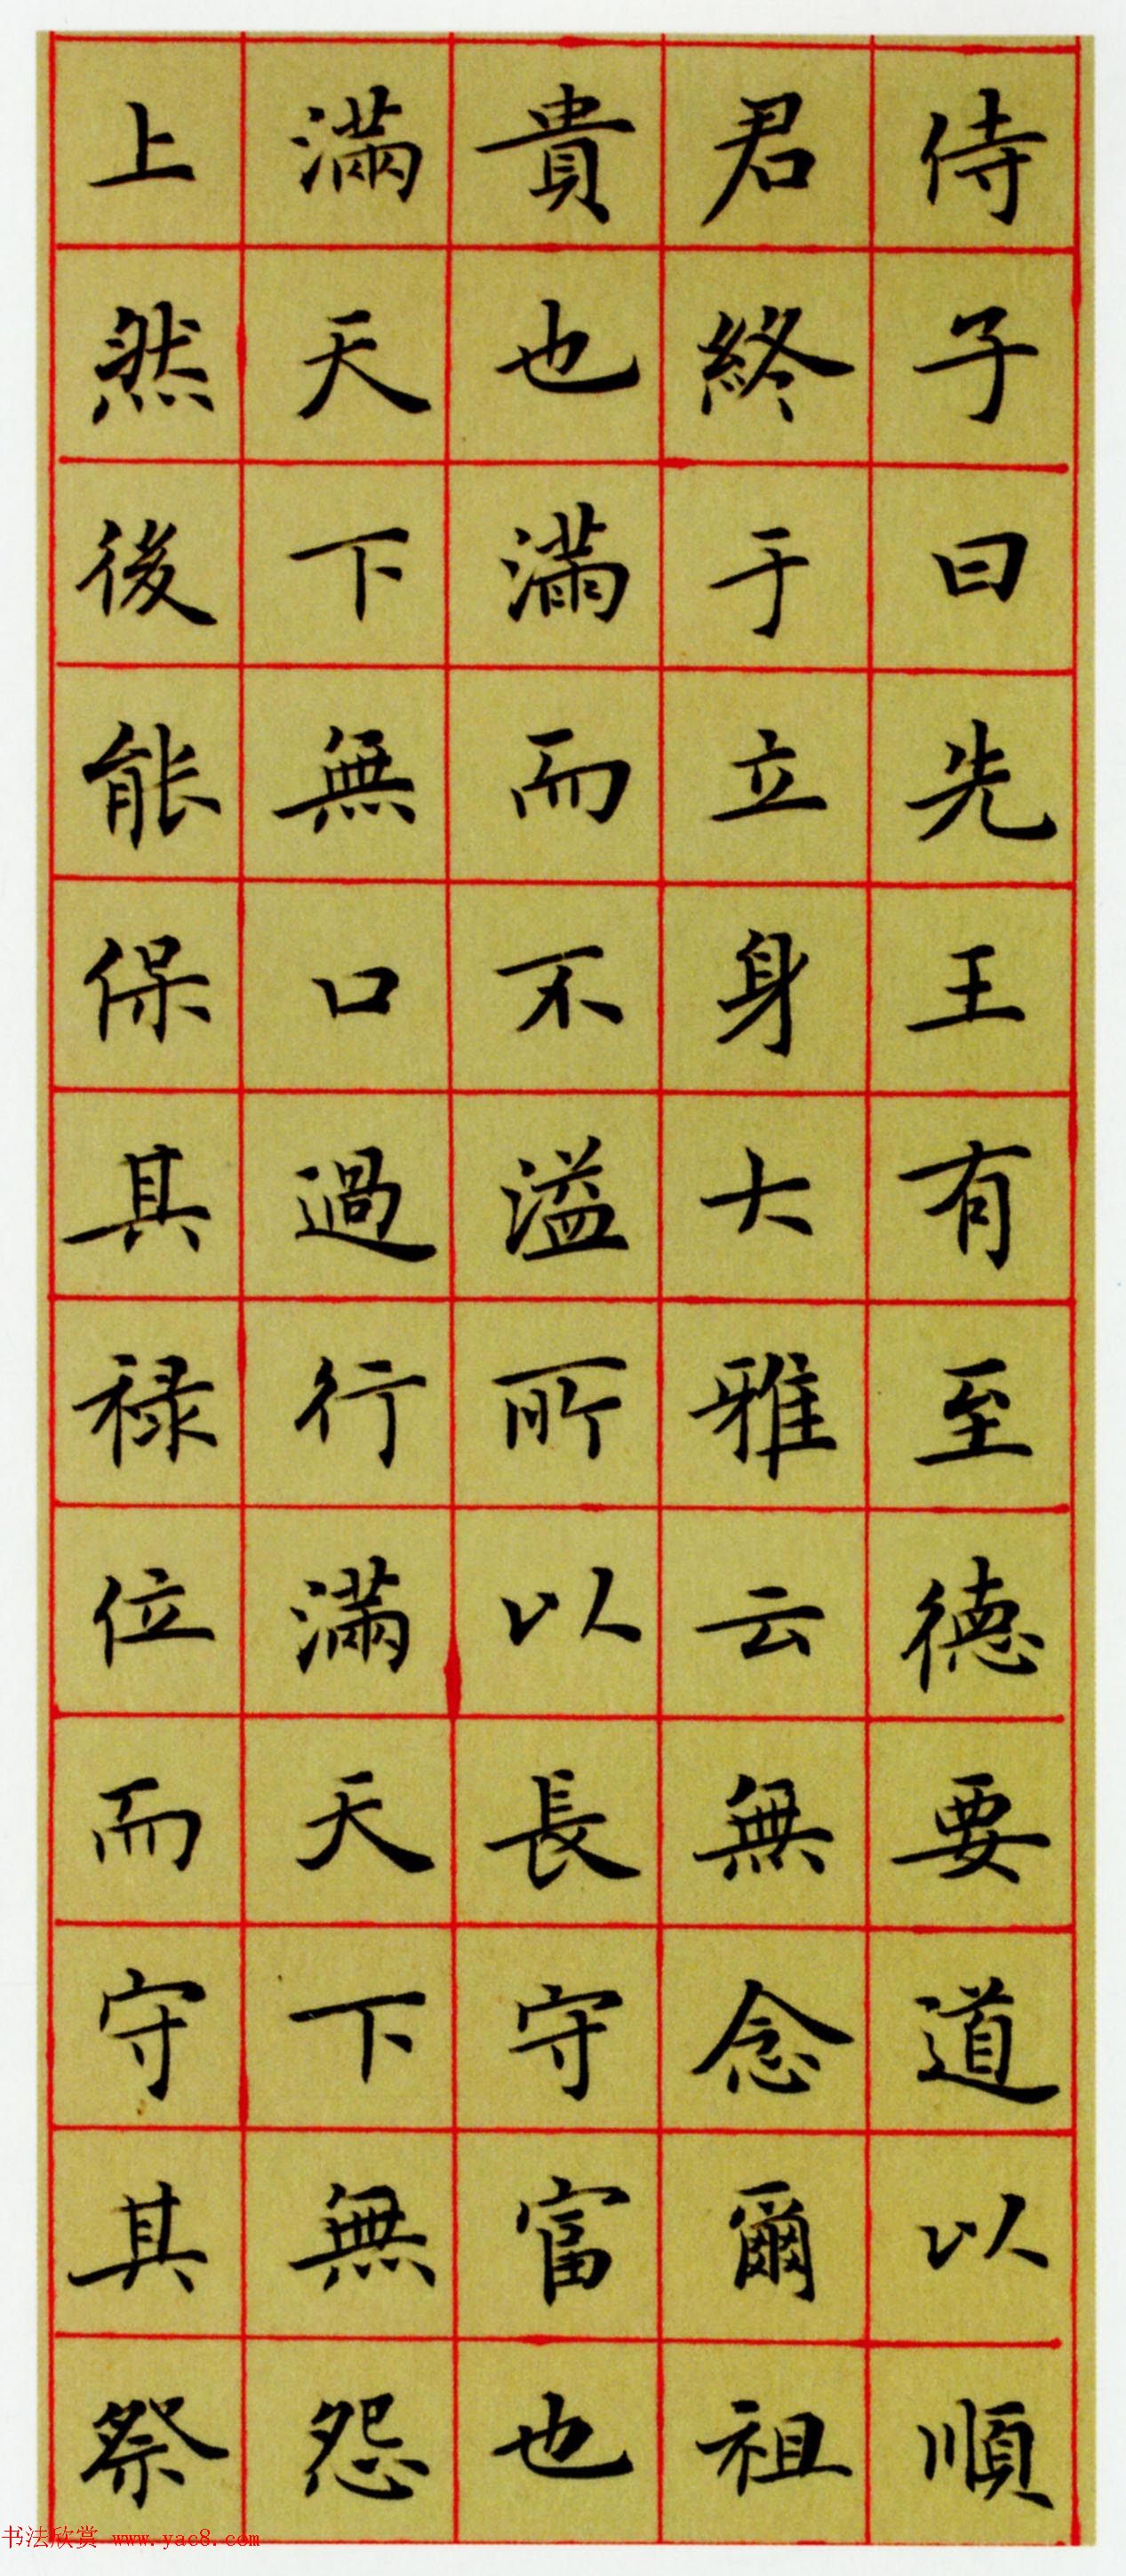 侍子曰先王有至德要道以順
君終于立身大雅云無念爾祖
貴也滿而不溢所以長守富也
滿天下無口過行滿天下無怨
上然後能保其禄位而守其祭
书法欣赏 www.yac8.com